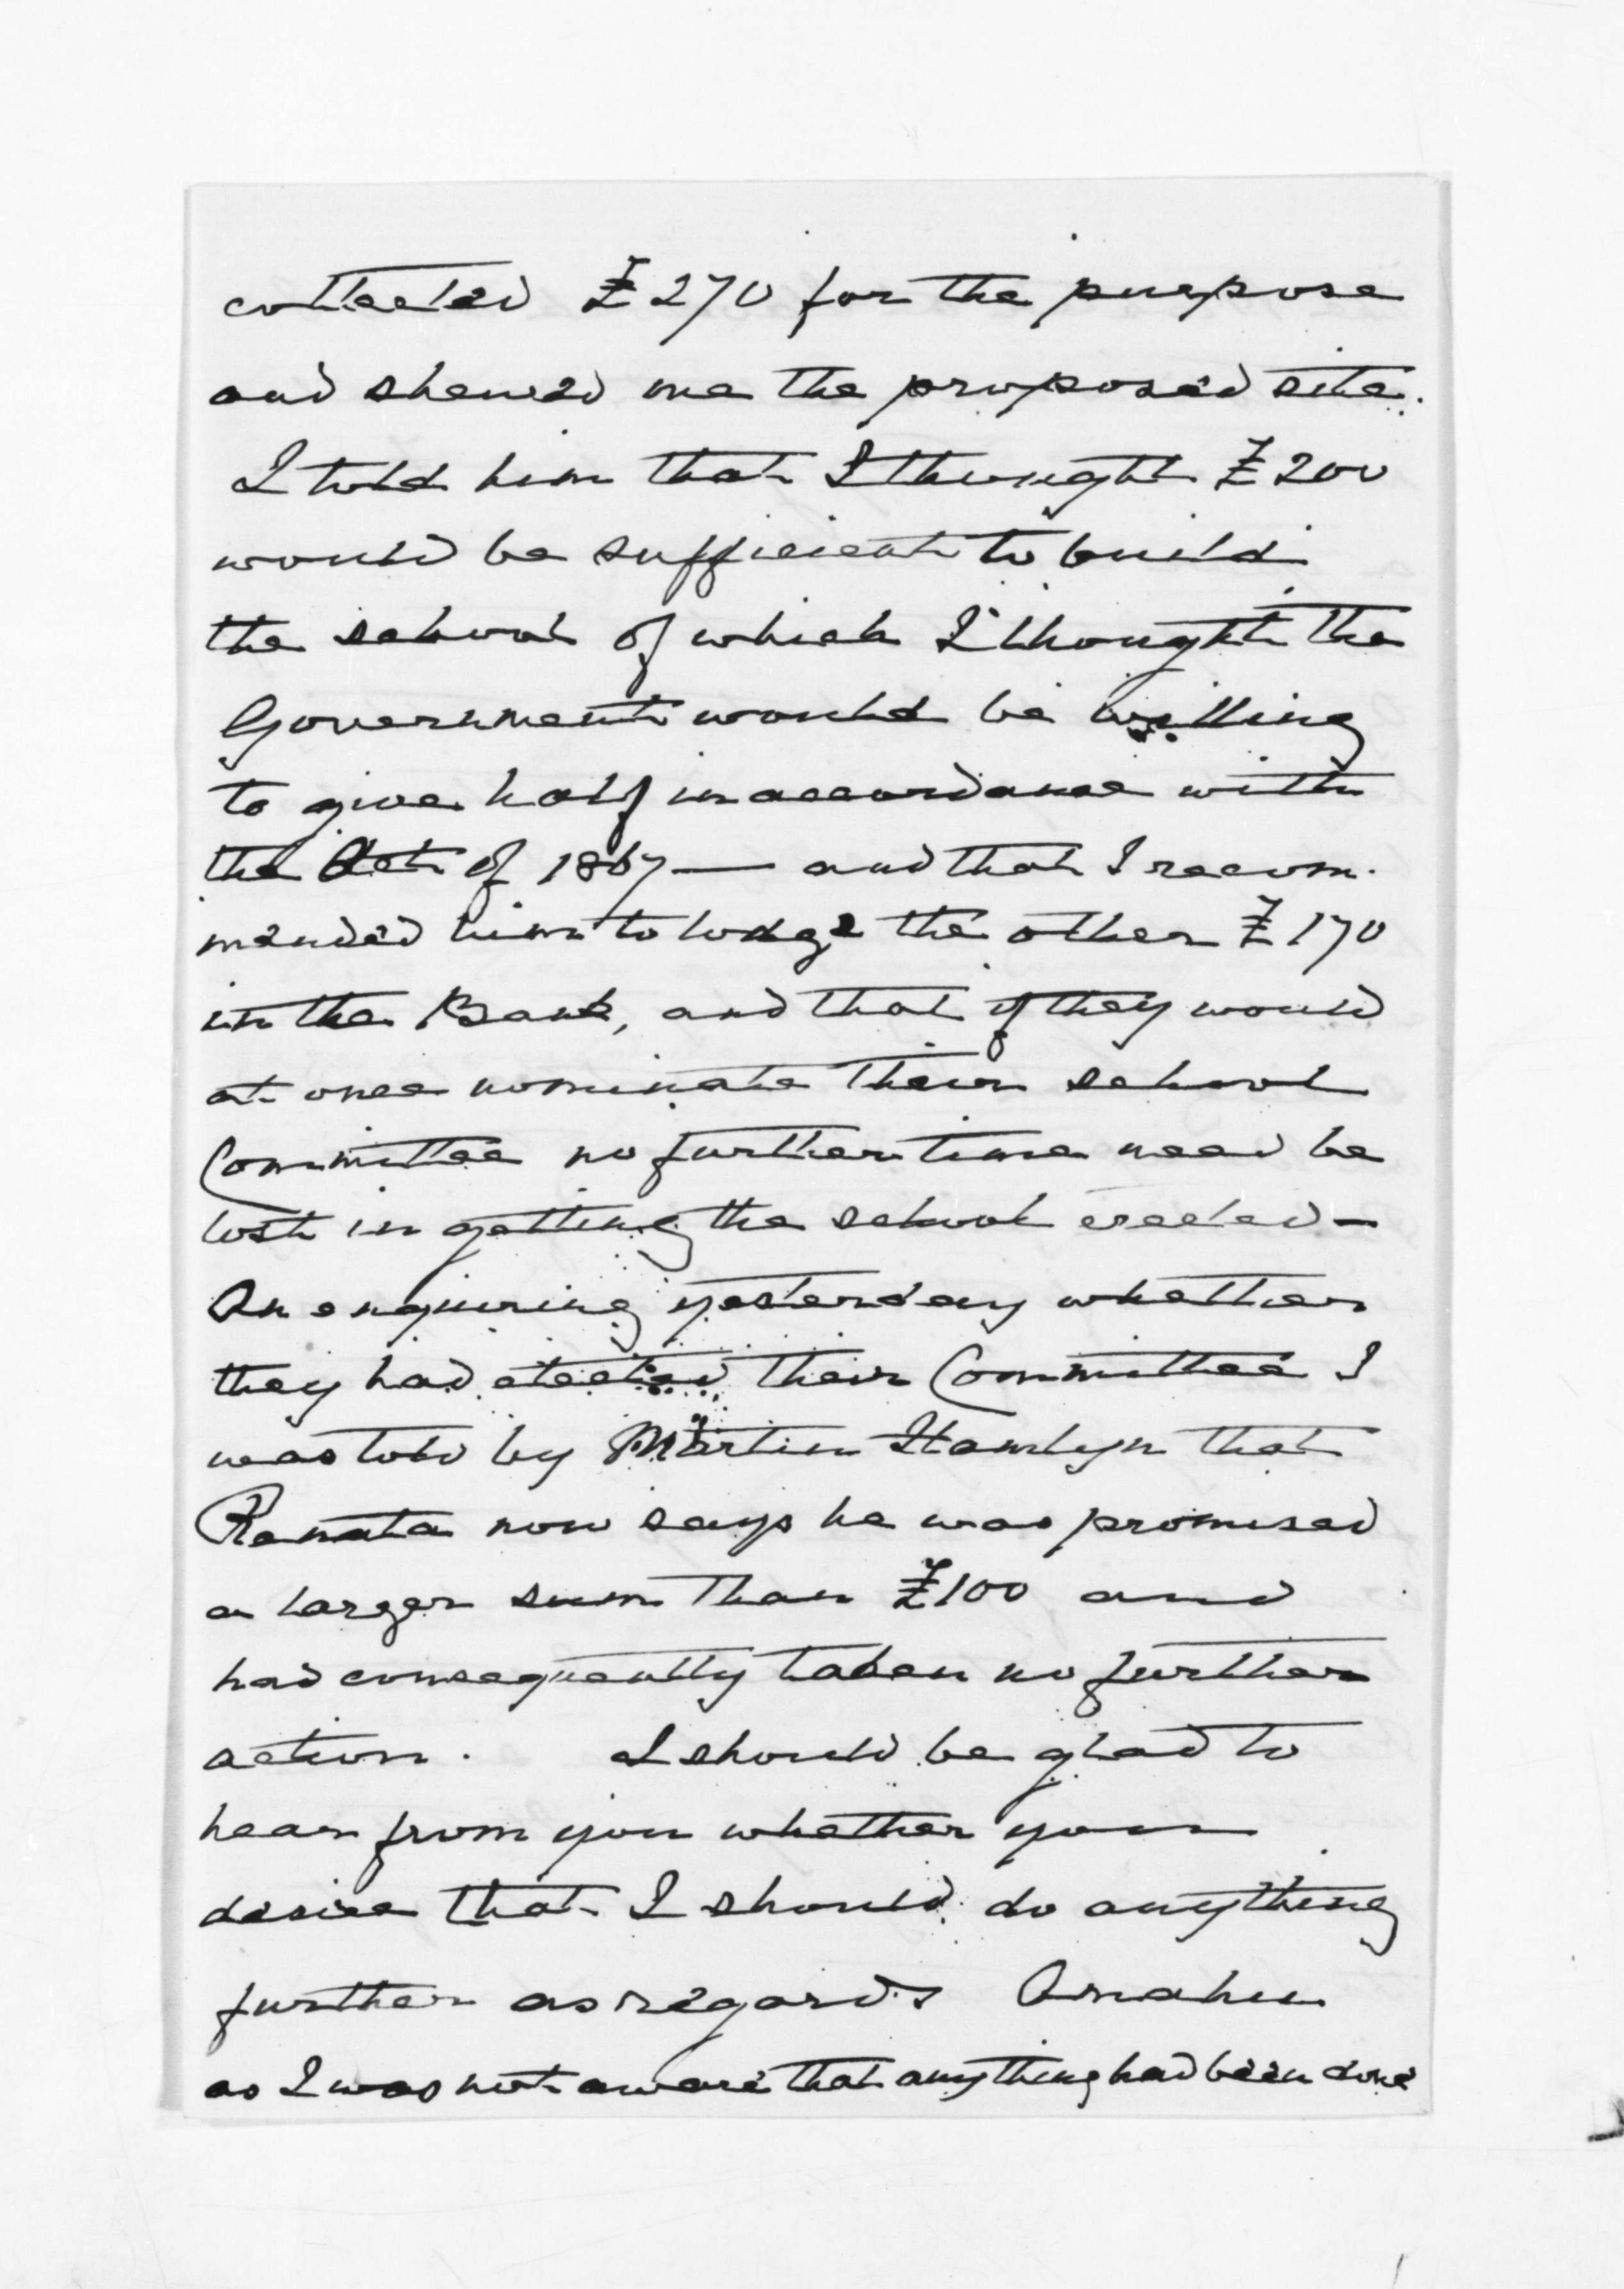 collected £270 for the purpose
and shewed me the proposed site.
I told him that I thought £200
would be sufficient to build
the school of which I thought the
Government would be willing
to give half in accordance with
the Act of 1867 — and that I recom-
mended him to lodge the other £170
in the Bank, and that if they would
at once nominate their school
Committee no further time need be
lost in getting the school erected —
On enquiring yesterday whether
they had elected their Committee I
was told by Martin Hamlyn that
Renata now says he was promised
a larger sum than £100 and
had consequently taken no further
action. I should be glad to
hear from you whether you
desire that I should do anything
further as regards Omahu
as I was not aware that anything had been done